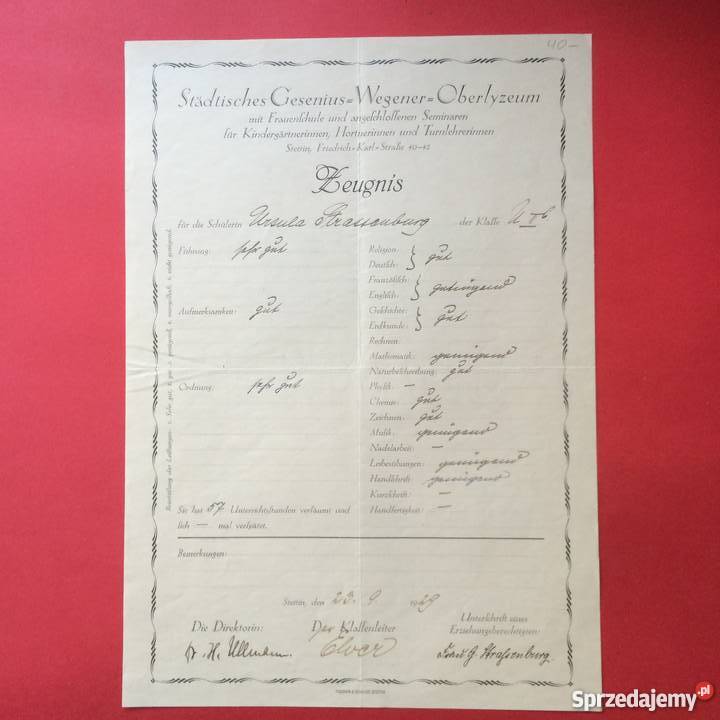 40-
Städtisches Gesenius=Wegener=Oberlyzeum
mit Frauenschule und angeschlossenen Seminaren
für Kindergärtnerinnen, Hortnerinnen und Turnlehrerinnen
Stettin, Friedrich=Karl=Straße 40-42
Zeugnis
für die Schülerin Ursula Strassenburg der Klasse U II b
Führung: sehr gut
Aufmerksamkeit: gut
Ordnung: sehr gut
Religion:
Deutsch: } gut
Französisch:
Englisch: } genügend
Geschichte:
Erdkunde: } gut
Rechnen:
Mathematik: genügend
Naturbeschreibung: gut
Physik: —
Chemie: gut
Zeichnen: gut
Musik: genügend
Nadelarbeit: —
Leibesübungen: genügend
Handschrift: genügend
Kurzschrift: —
Handfertigkeit: —
Sie hat 57 Unterrichtsstunden versäumt und
sich — mal verspätet.
Bemerkungen:
Stettin, den 23. 9. 1929
Die Direktorin:
Dr. H. Ullmann.
Der Klassenleiter
Unterschrift eines
Erziehungsberechtigten:
Frau G. Straßenburg.
Beurteilung der Leistungen: 1. Sehr gut, 2. gut, 3. genügend, 4. mangelhaft, 5. nicht genügend.
Sprzedajemy.pl